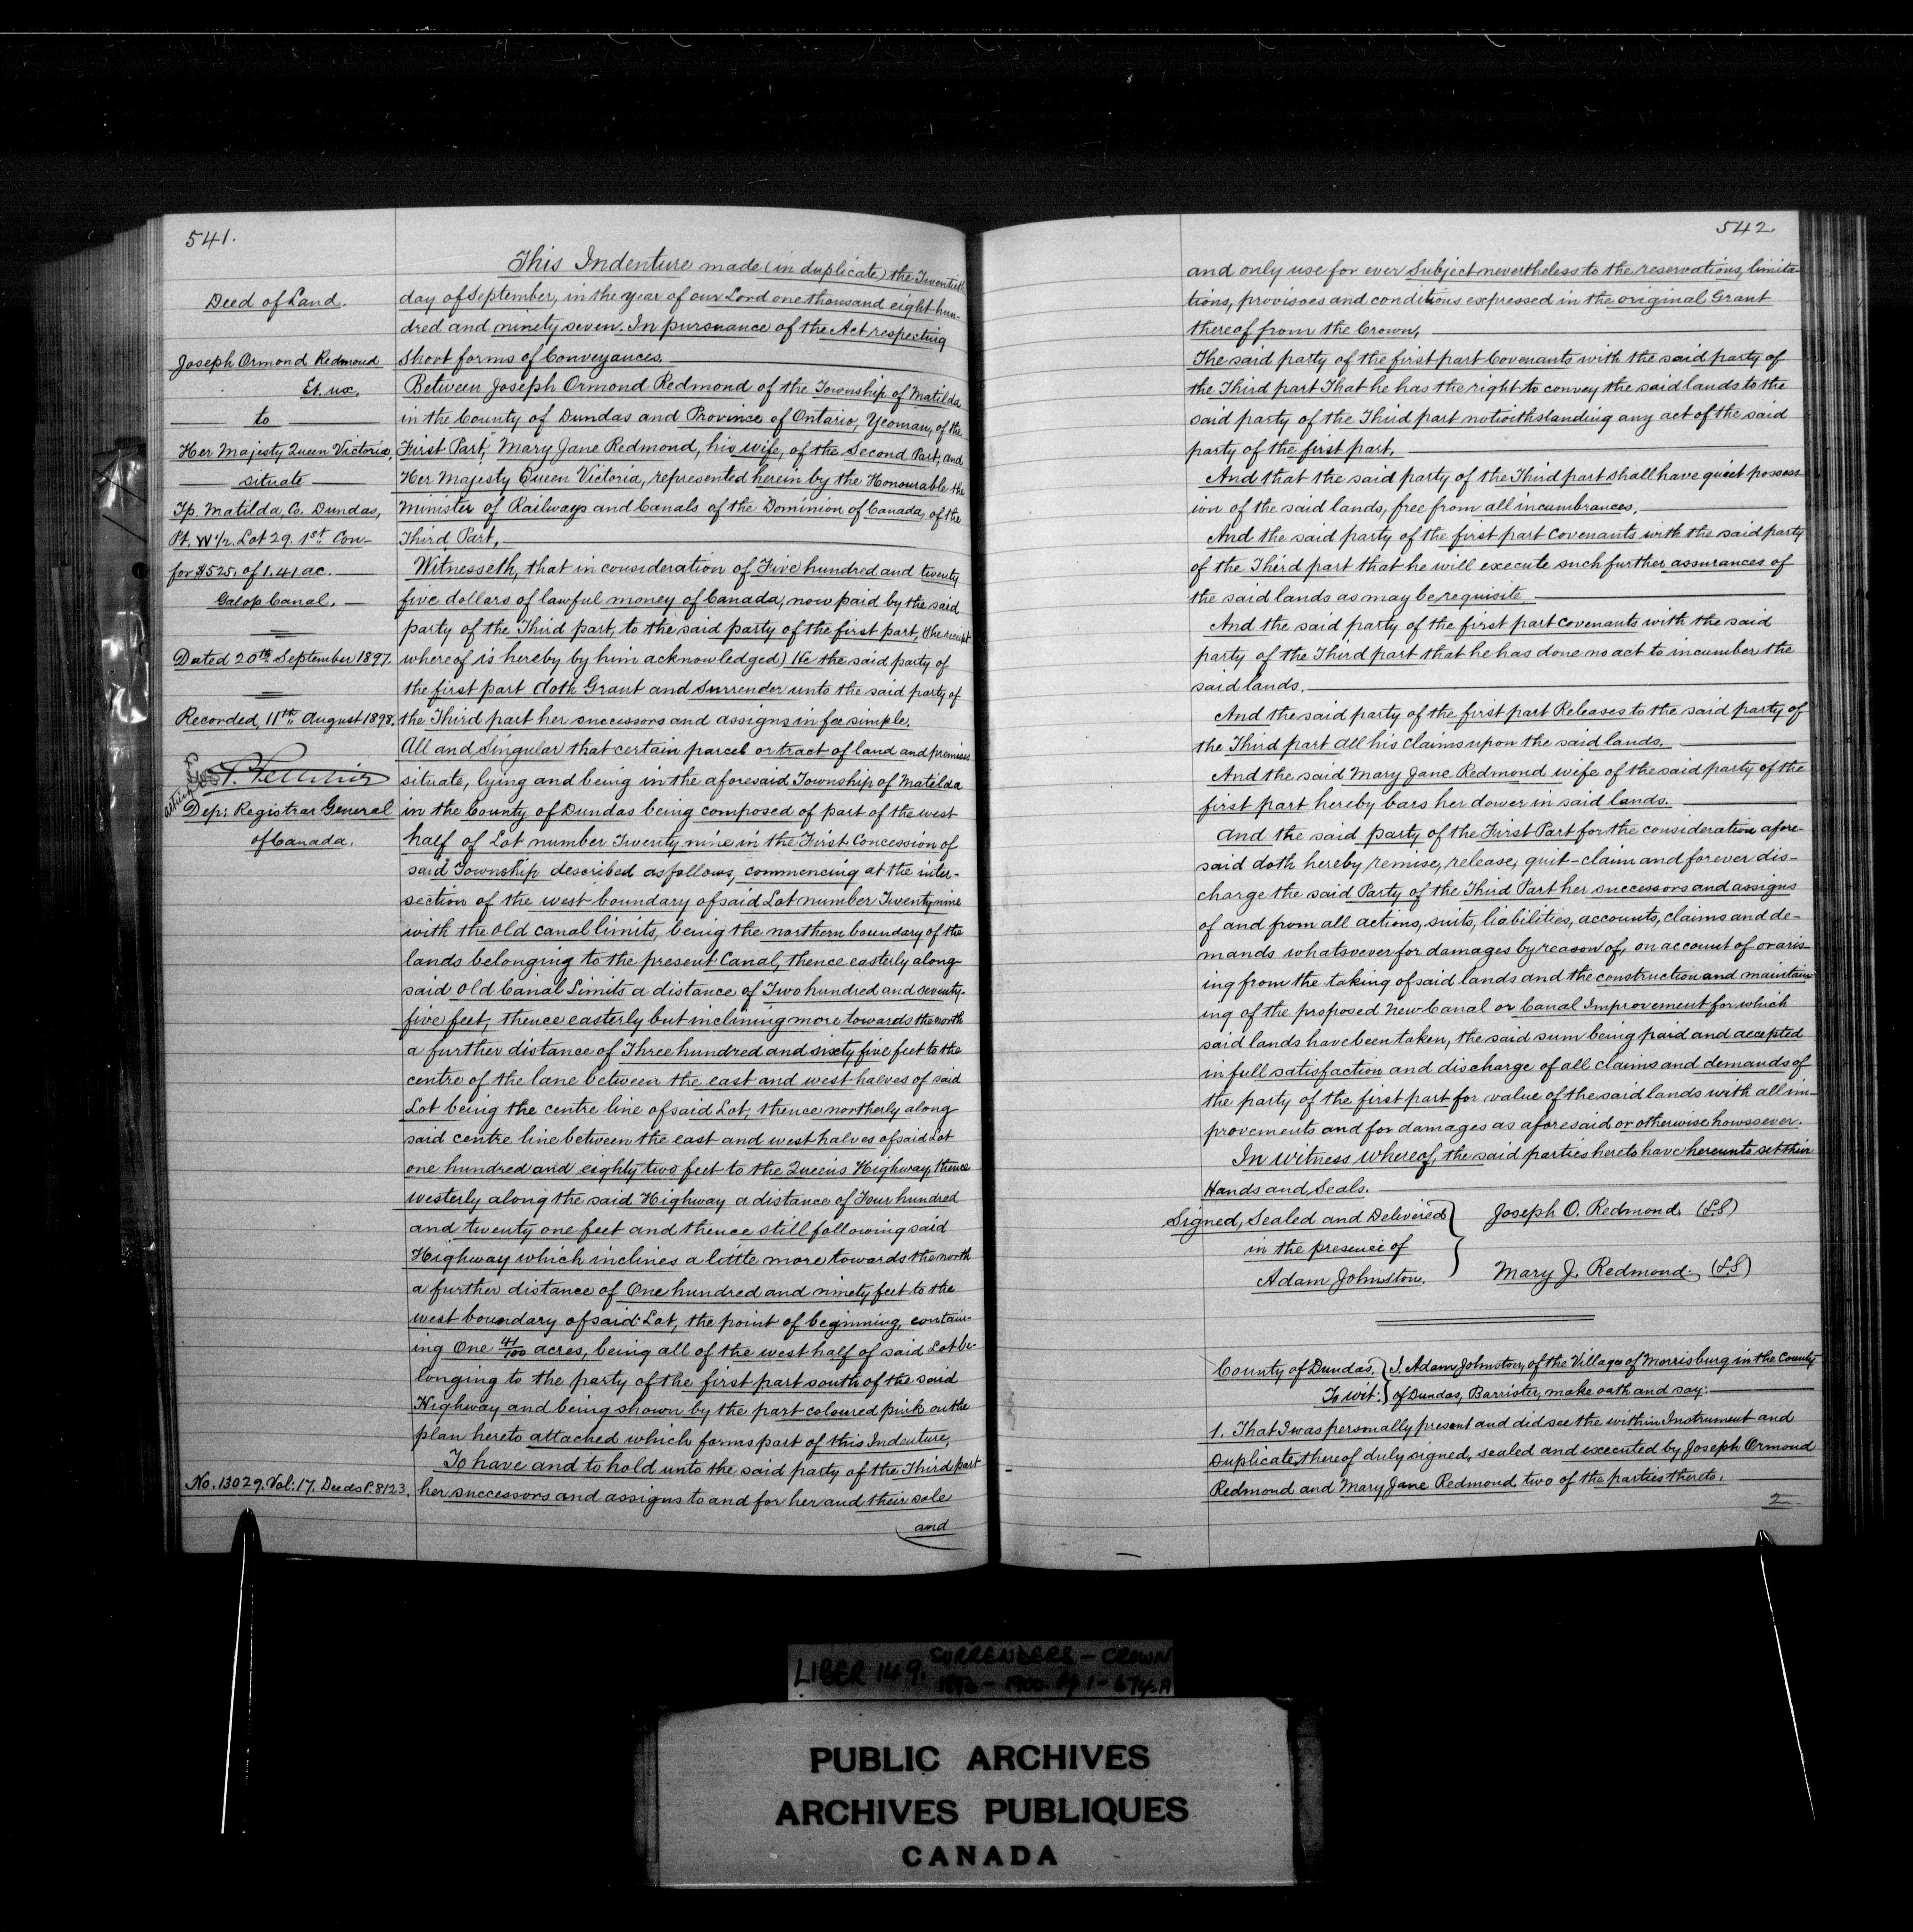 541.
Deed of Land.
Joseph Ormond Redmond
Et. ux,
to
Her Majesty Queen Victoria,
situate
Tp. Matilda, Co. Dundas,
Pt. W 1/2. Lot 29. 1st Con-
for $525. of 1.41 ac.
Galop Canal.
Dated 20th September 1897.
Recorded, 11th August 1898.
Acting
P. Pelletier
Dep: Registrar General
of Canada.
No. 13029. Vol: 17. Deeds P. 8123.
This Indenture made (in duplicate) the Twentieth
day of September, in the year of our Lord one thousand eight hun-
dred and ninety seven. In pursuance of the Act respecting
Short forms of Conveyances.
Between Joseph Ormond Redmond of the Township of Matilda
in the County of Dundas and Province of Ontario, Yeoman, of the
First Part, Mary Jane Redmond, his wife, of the Second Part, and
Her Majesty Queen Victoria, represented herein by the Honourable the
Minister of Railways and Canals of the Dominion of Canada, of the
Third Part,
Witnesseth, that in consideration of Five hundred and twenty
five dollars of lawful money of Canada, now paid by the said
party of the Third part, to the said party of the first part, (the receipt
whereof is hereby by him acknowledged) He the said party of
the first part doth Grant and Surrender unto the said party of
the Third part her successors and assigns in fee simple.
All and Singular that certain parcel or tract of land and premises
situate, lying and being in the aforesaid Township of Matilda
in the County of Dundas being composed of part of the west
half of Lot number Twenty nine in the First Concession of
said Township described as follows, commencing at the inter-
section of the west boundary of said Lot number Twenty nine
with the old canal limits, being the northern boundary of the
lands belonging to the present Canal, thence easterly along
said old Canal Limits a distance of Two hundred and seventy-
five feet, thence easterly but inclining more towards the north
a further distance of Three hundred and sixty five feet to the
centre of the lane between the east and west halves of said
Lot being the centre line of said Lot, thence northerly along
said centre line between the east and west halves of said Lot
one hundred and eighty two feet to the Queen's Highway, thence
westerly along the said Highway a distance of Four hundred
and twenty one feet and thence still following said
Highway which inclines a little more towards the north
a further distance of One hundred and ninety feet to the
west boundary of said Lot, the point of beginning, contain-
ing One 41/100 acres, being all of the west half of said Lot be-
longing to the party of the first part south of the said
Highway and being shown by the part coloured pink on the
plan hereto attached which forms part of this Indenture,
To have and to hold unto the said party of the Third part
her successors and assigns to and for her and their sole
and
542.
and only use for ever Subject nevertheless to the reservations, limita-
tions, provisoes and conditions expressed in the original Grant
thereof from the Crown,
The said party of the first part Covenants with the said party of
the Third part That he has the right to convey the said lands to the
said party of the Third part notwithstanding any act of the said
party of the first part,
And that the said party of the Third part shall have quiet possess-
ion of the said lands, free from all incumbrances,
And the said party of the first part covenants with the said party
of the Third part that he will execute such further assurances of
the said lands as may be requisite.
And the said party of the first part covenants with the said
party of the Third part that he has done no act to incumber the
said lands.
And the said party of the first part Releases to the said party of
the Third part all his claims upon the said lands.
And the said Mary Jane Redmond wife of the said party of the
first part hereby bars her dower in said lands.
And the said party of the First Part for the consideration afore-
said doth hereby remise, release, quit-claim and forever dis-
charge the said Party of the Third Part her successors and assigns
of and from all actions, suits, liabilities, accounts, claims and de-
mands whatsoever for damages by reason of, on account of or aris-
ing from the taking of said lands and the construction and maintain-
ing of the proposed New Canal or Canal Improvement for which
said lands have been taken, the said sum being paid and accepted
in full satisfaction and discharge of all claims and demands of
the party of the first part for value of the said lands with all im-
provements and for damages as aforesaid or otherwise howsoever.
In witness whereof, the said parties hereto have hereunto set their
Hands and Seals.
Signed, Sealed and Delivered
in the presence of
Adam Johnston.
Joseph O. Redmond (L.S)
Mary J. Redmond. (L.S)
County of Dundas,
To wit:
I, Adam Johnston, of the Village of Morrisburg in the County
of Dundas, Barrister, make oath and say:
1. That I was personally present and did see the within Instrument and
Duplicate thereof duly signed, sealed and executed by Joseph Ormond
Redmond and Mary Jane Redmond, two of the parties thereto,
2
LIBER 149. SURRENDERS - CROWN
1893 - 1900. Pp 1 - 674-A
PUBLIC ARCHIVES
ARCHIVES PUBLIQUES
CANADA